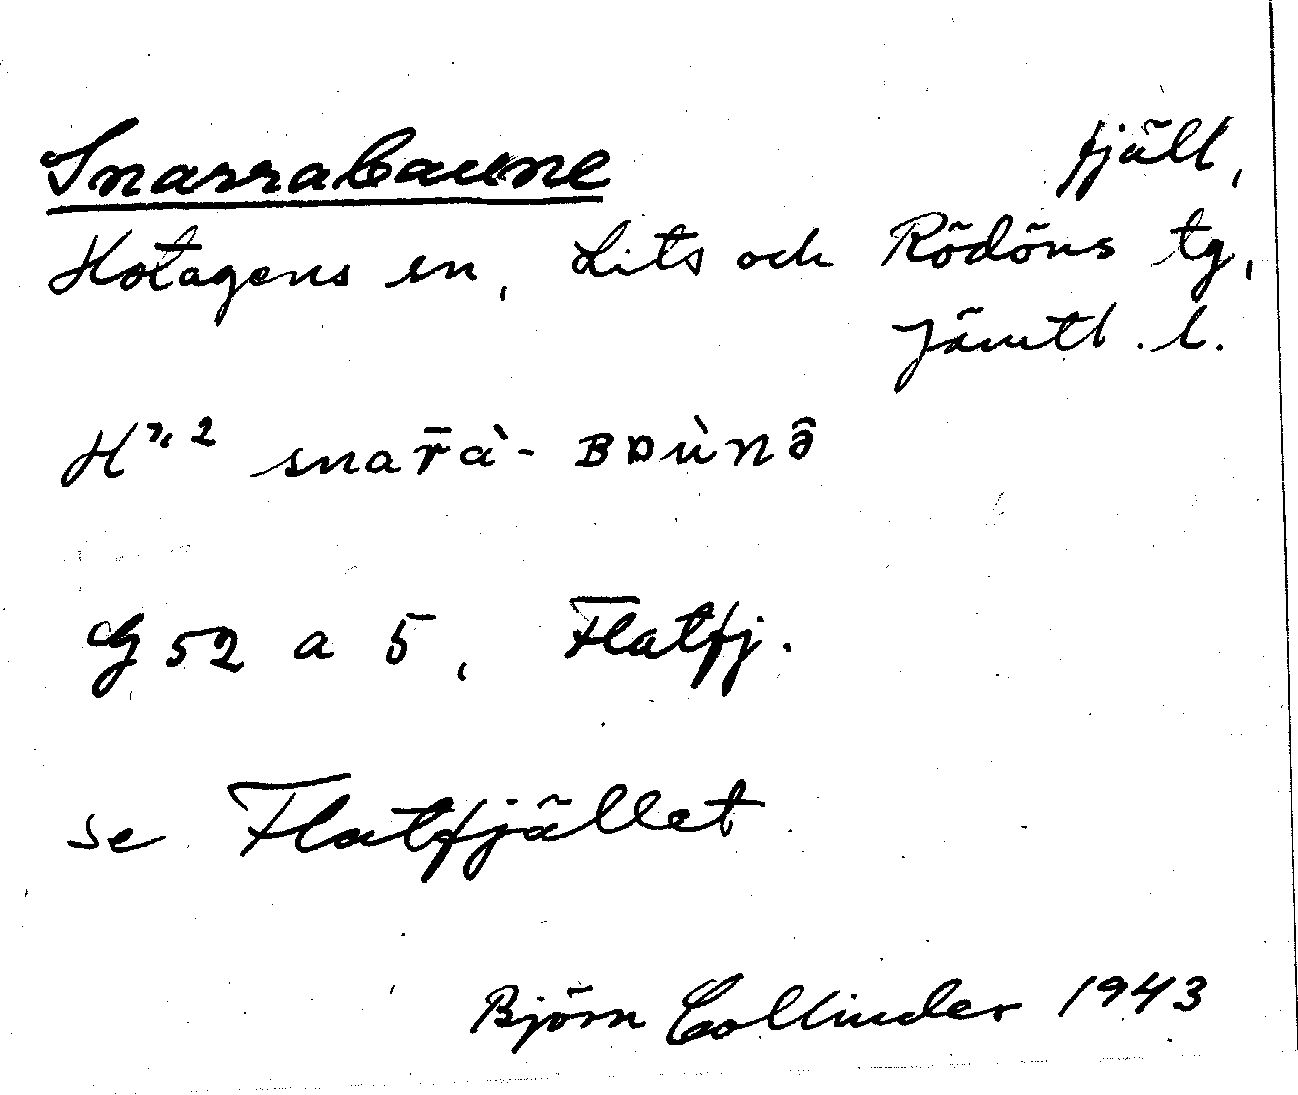 Snarrabaune fjäll,
Hotagens sn, Lits och Rödöns tg,
Jämtl. l.
snar̄à-
G 52 a 5, Flatfj.
se Flatfjället
Björn Collinder 1943